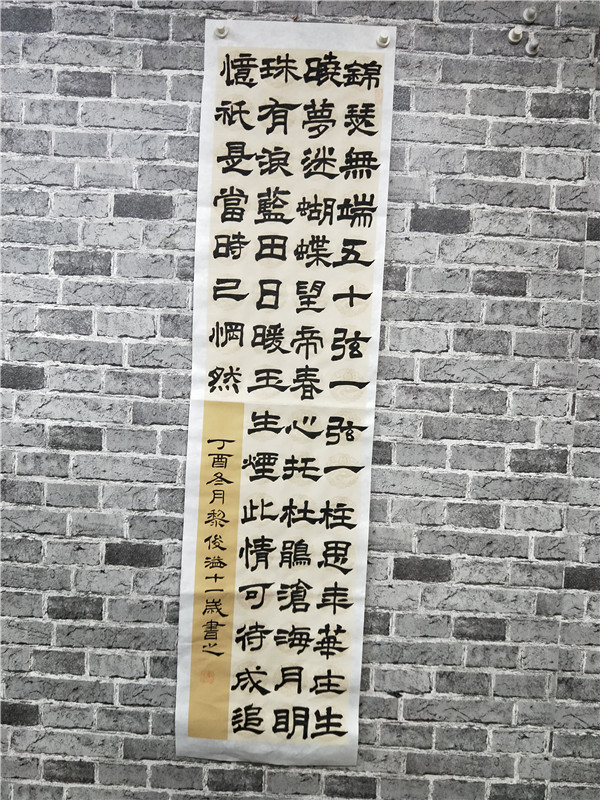 錦瑟無端五十弦一弦一柱思年華庄生
曉夢迷蝴蝶望帝春心托杜鵑滄海月明
珠有淚藍田日暖玉生煙此情可待成追
憶祇是當時已惘然
丁酉冬月黎俊十一歲書之